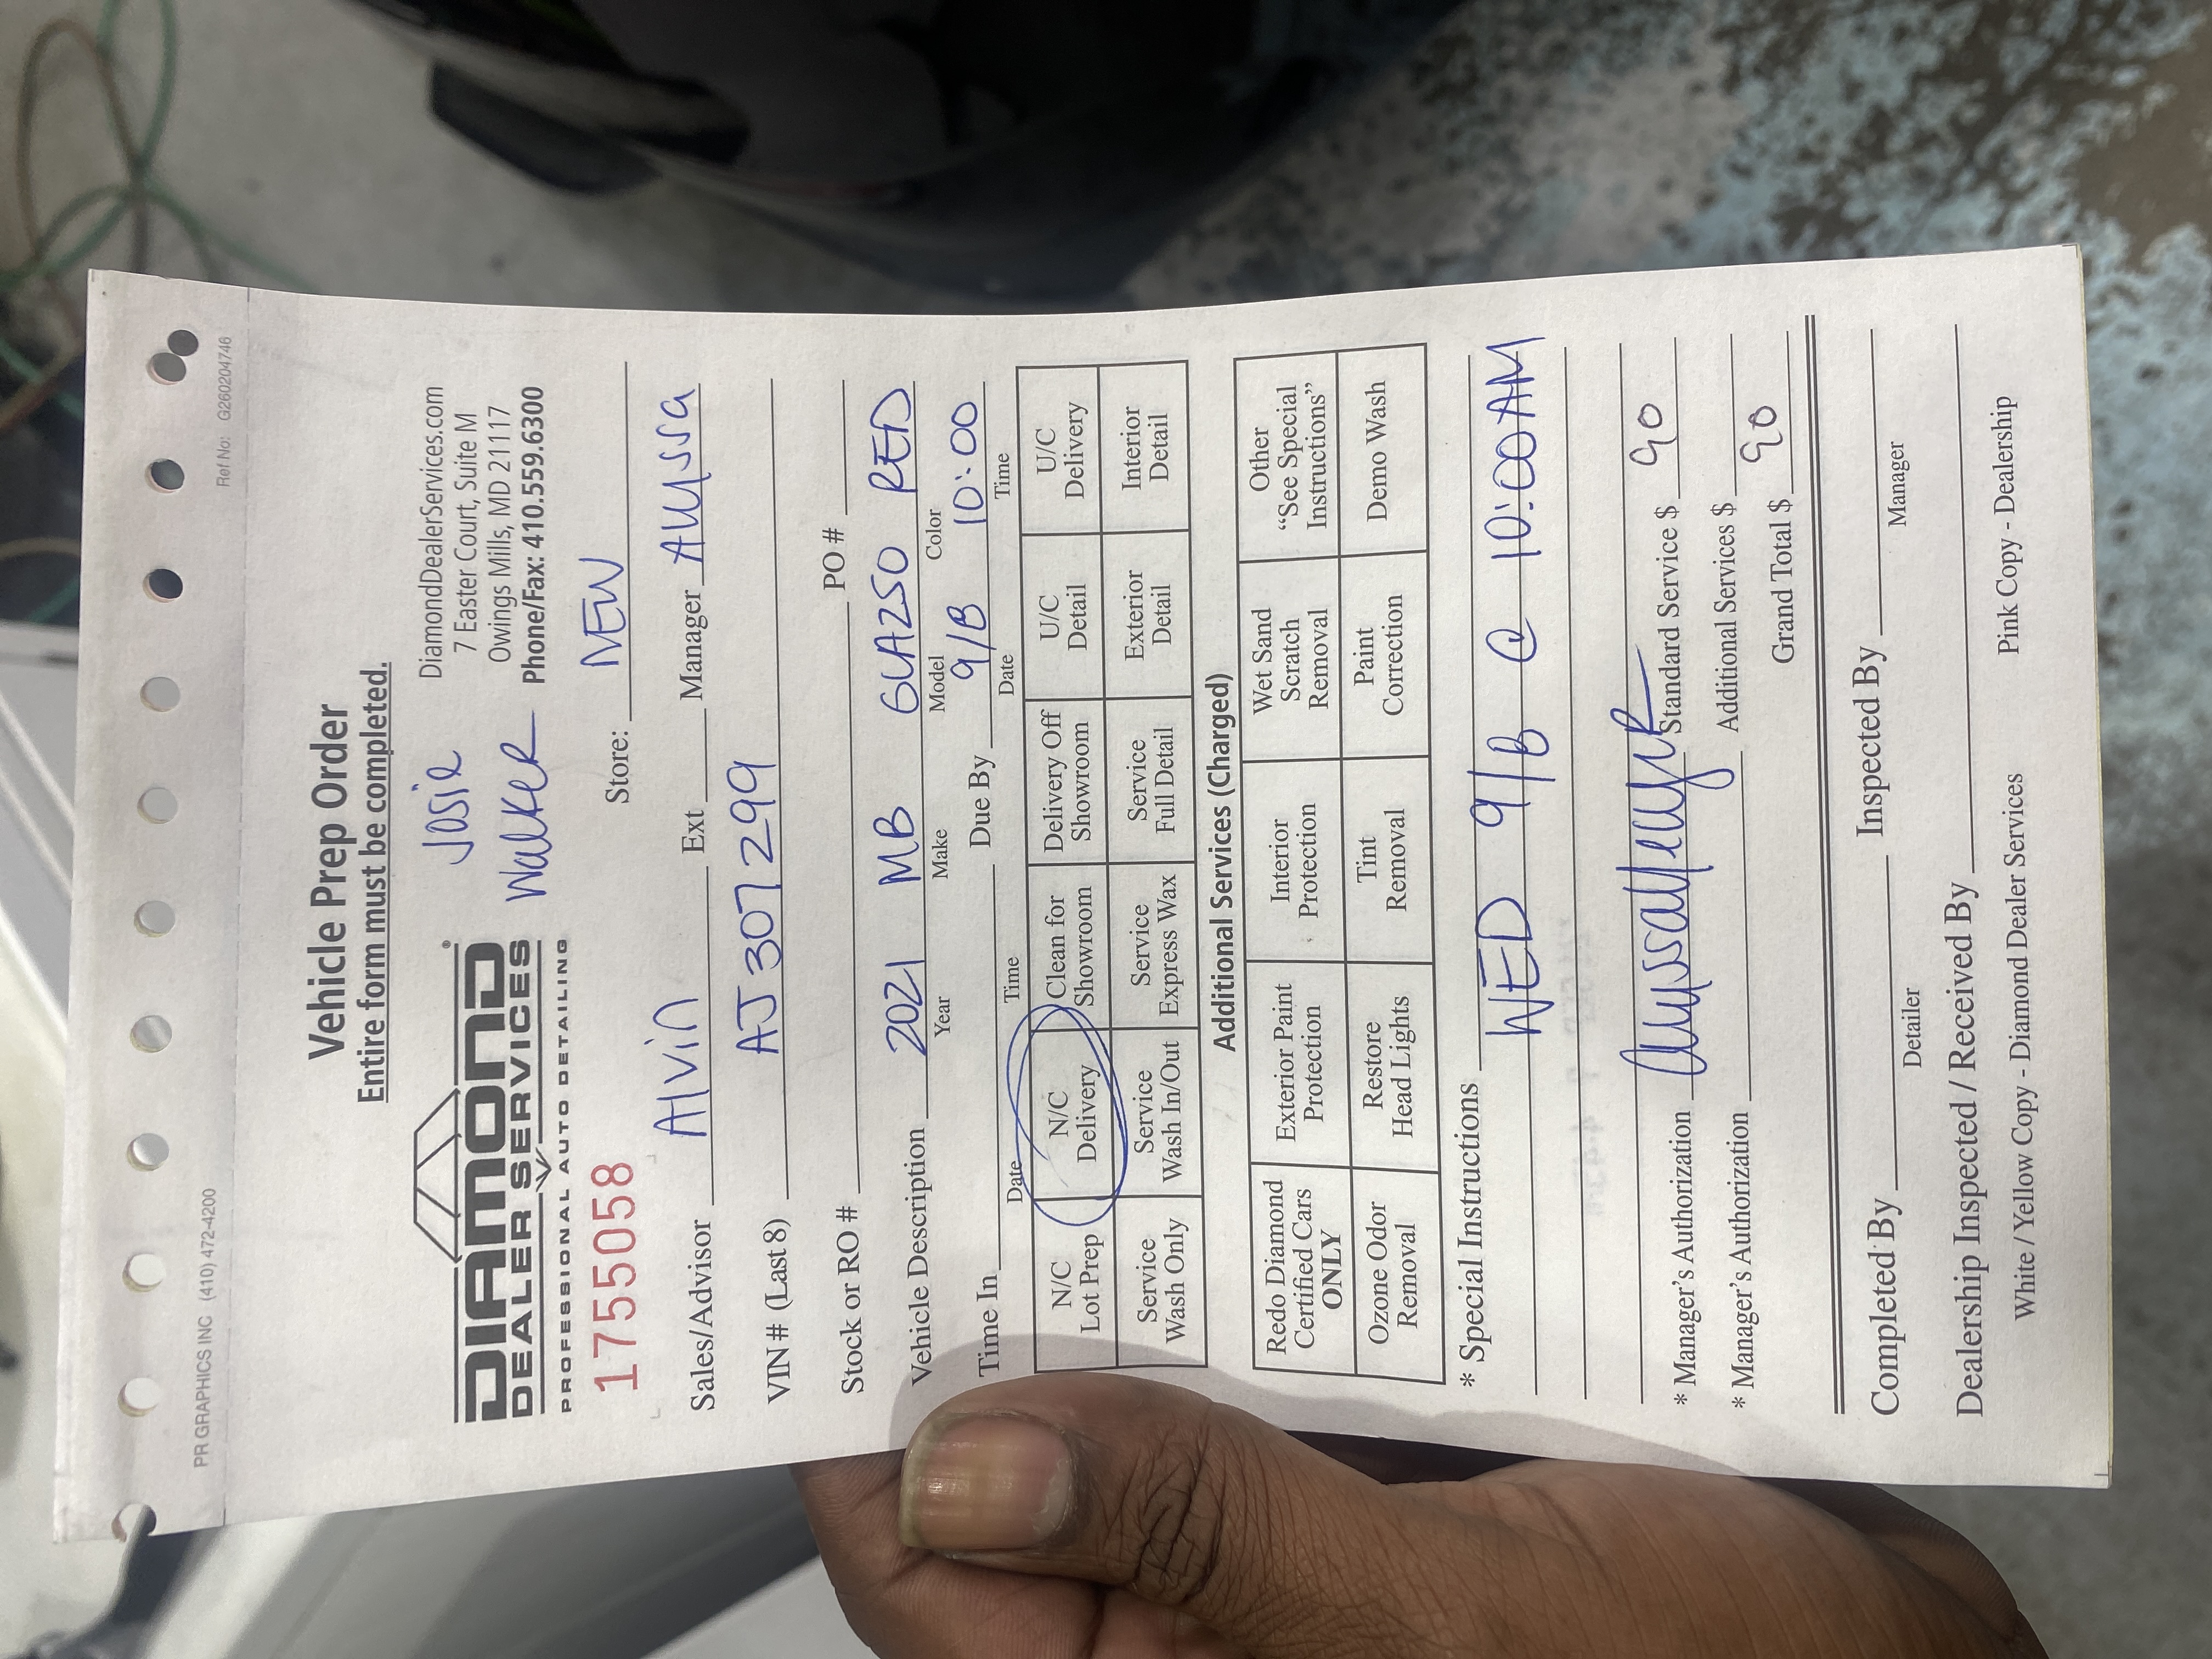 PR GRAPHICS INC (410) 472-4200 Ref No: G260204746
Vehicle Prep Order
Entire form must be completed.
DIAMOND®
DEALER SERVICES
PROFESSIONAL AUTO DETAILING
Josie
Walker
DiamondDealerServices.com
7 Easter Court, Suite M
Owings Mills, MD 21117
Phone/Fax: 410.559.6300
1755058 Store: NEW
Sales/Advisor Alvin Ext Manager Alyssa
VIN # (Last 8) AJ307299
Stock or RO # PO #
Vehicle Description 2021 MB GLA250 RED
Year Make Model Color
Time In Due By 9/8 10:00
Date Time Date Time
N/C Lot Prep N/C Delivery Clean for Showroom Delivery Off Showroom U/C Detail U/C Delivery
Service Wash Only Service Wash In/Out Service Express Wax Service Full Detail Exterior Detail Interior Detail
Additional Services (Charged)
Redo Diamond Certified Cars ONLY Exterior Paint Protection Interior Protection Wet Sand Scratch Removal Other “See Special Instructions”
Ozone Odor Removal Restore Head Lights Tint Removal Paint Correction Demo Wash
* Special Instructions
WED 9/8 @ 10:00AM
* Manager's Authorization Standard Service $ 90
* Manager's Authorization Additional Services $
Grand Total $ 90
Completed By Inspected By
Detailer Manager
Dealership Inspected / Received By
White / Yellow Copy - Diamond Dealer Services Pink Copy - Dealership